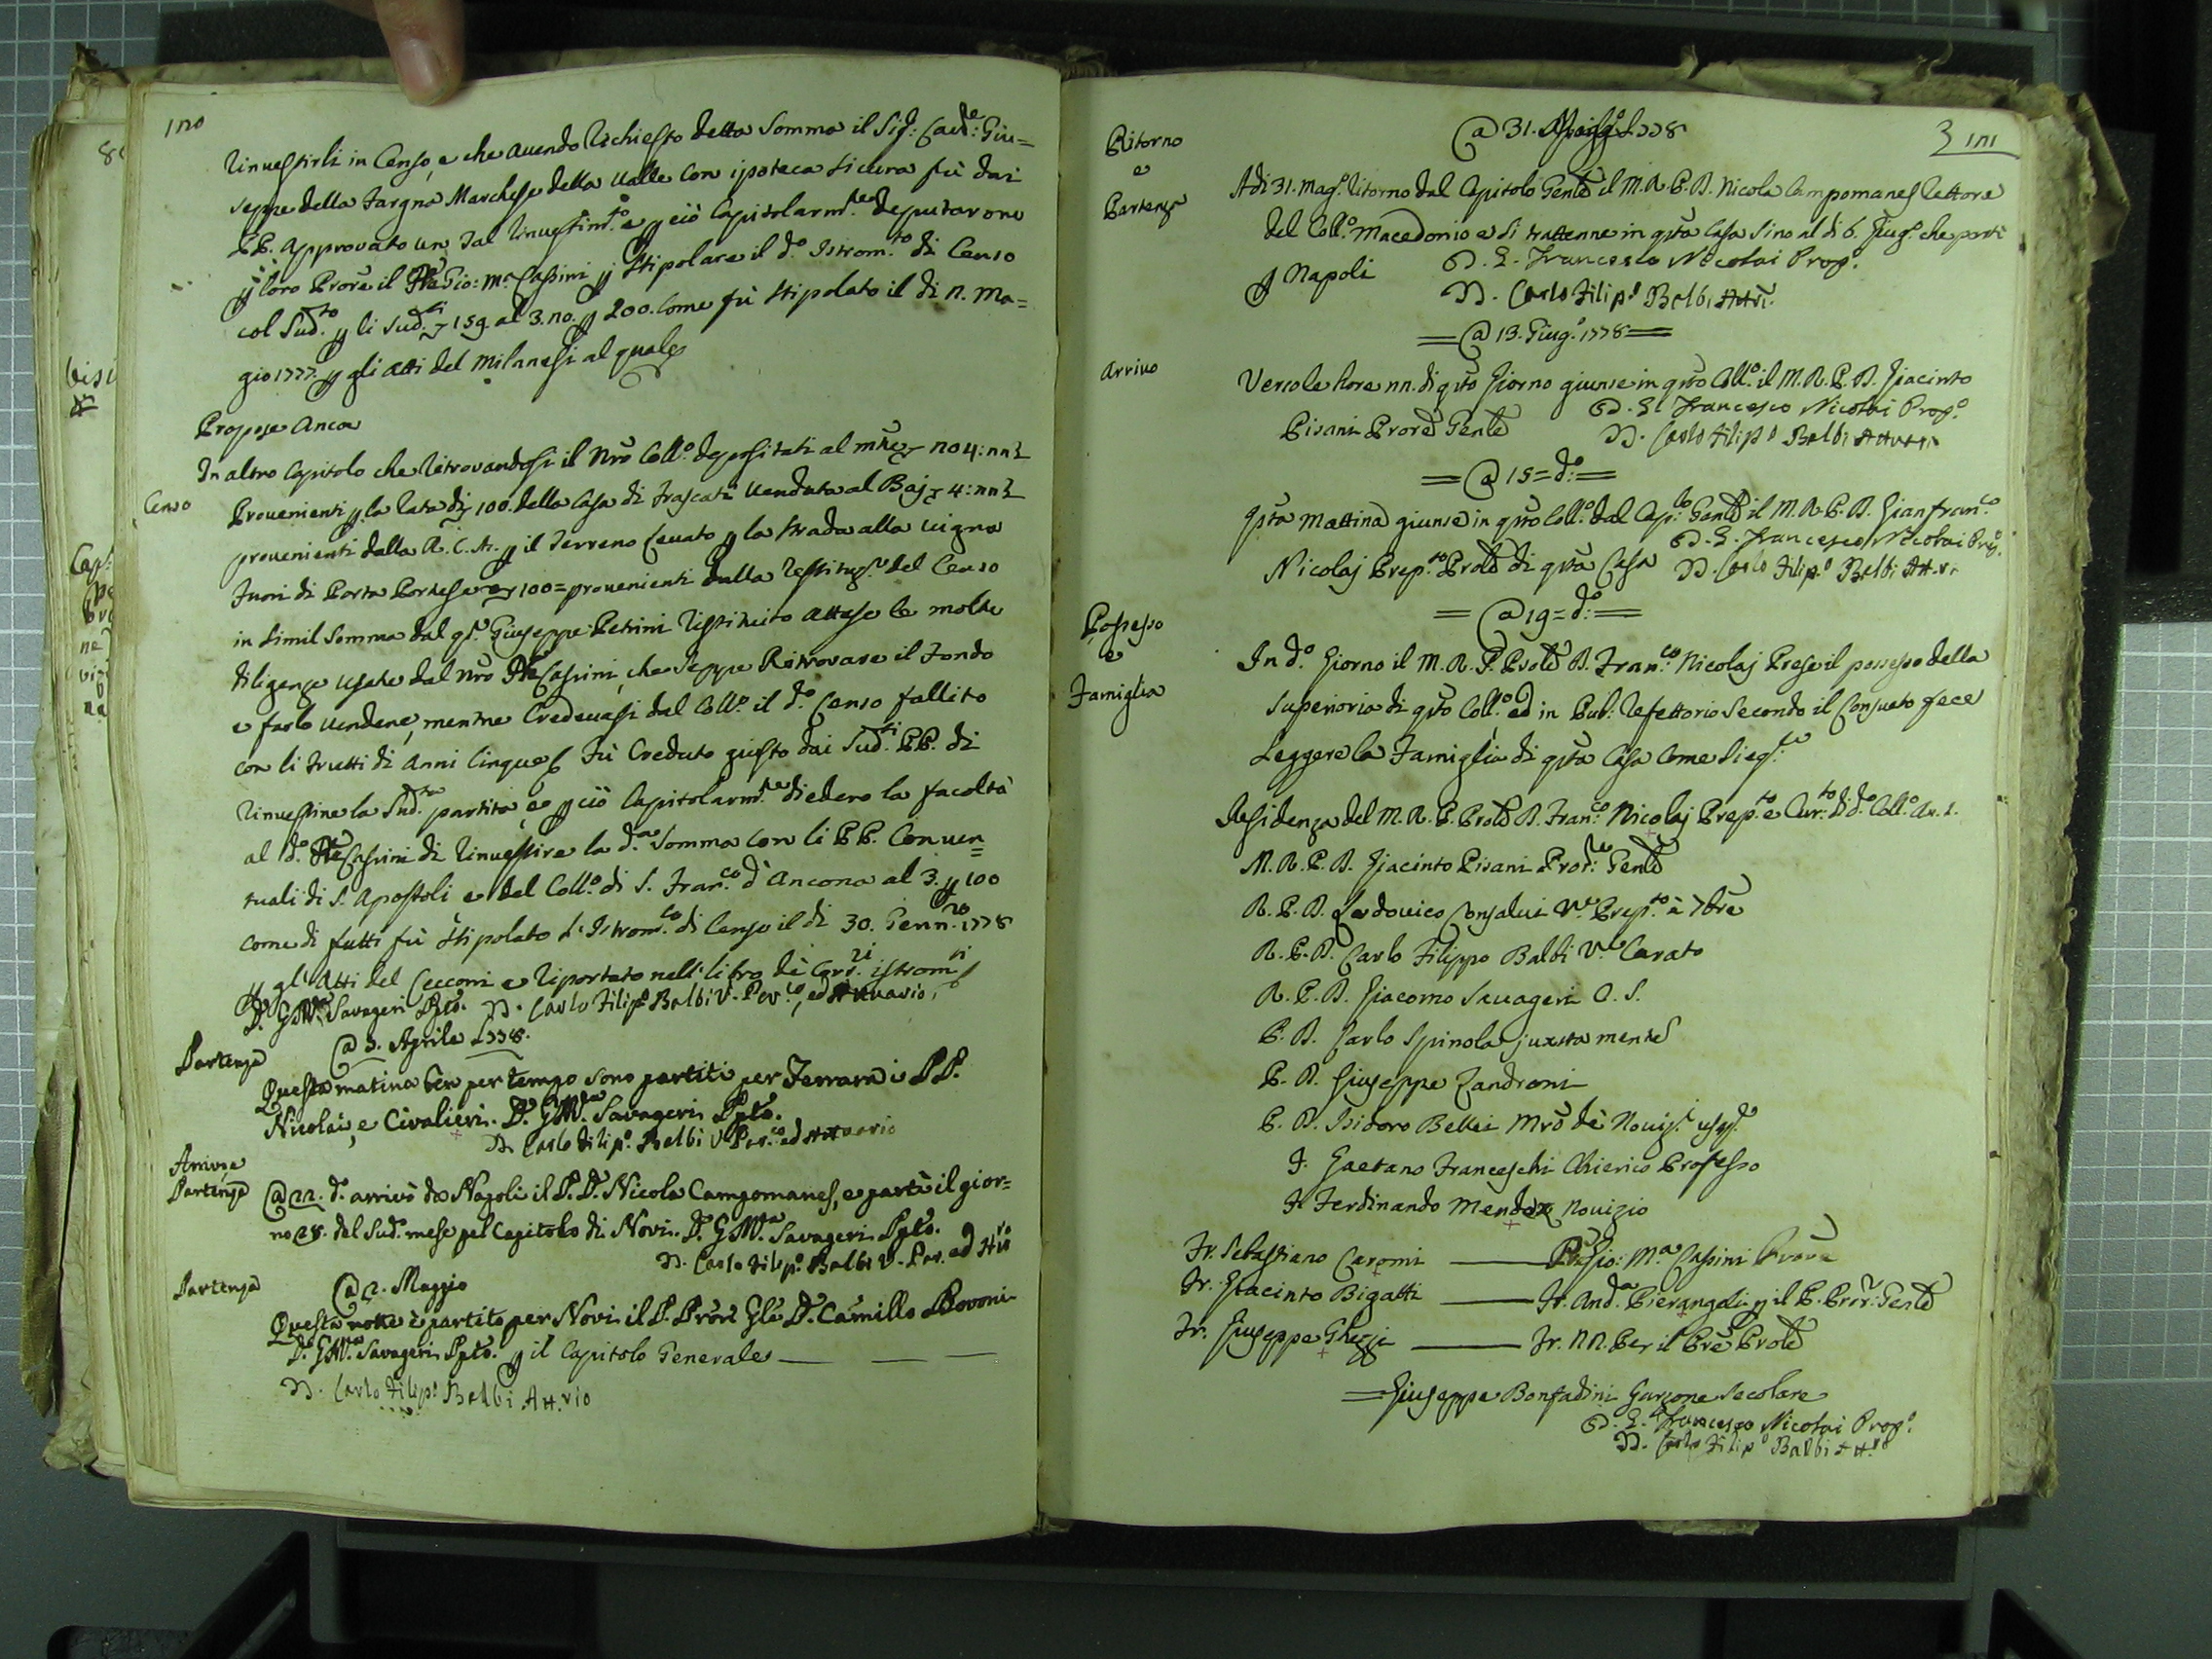 120
rinvestirli in Censo, e che avendo richiesto detta Somma il Sig: Cav:re Giu=
seppe della Fargna Marchese della Valle con ipoteca sicura fù dai
PP. approvato un tal rinvestim.to e p ciò Capitolarm.te deputarono
p loro Prore il Pre Gio: M.a Cassini p stipolare il d.o Istrom.to di Censo
col Sud.to p li Sud.ti 159. al 3. no. p 200. come fù stipolato il di 2. Ma=
gio 1777. p gli atti del Milanesi al quale
Propose Anca
In altro Capitolo che ritrovandosi il Nro Coll.o depositati al 204:22
Censo
Provenienti p la rata di 100. della Casa di Frascati venduta al Baj 4:22
provenienti dalla R. C. A. p il Terreno levato p la strada alla vigna
Fuori di Porta Portese e 100= provenienti dalla restituz.e del Censo
in simil somma dal q.m Giuseppe Petrini restituito attese le molte
diligenze usate dal nro Pre Cassini, che seppe Ritrovare il Fondo
e farlo vendere, mentre credevasi dal Coll.o il d.o Censo fallito
con li frutti di anni cinque Fù Creduto giusto dai Sud.ti PP. di
rinvestire la Sud.ta partita, e p ciò Capitolarm.te diedero la facoltà
al d.o Pre Cassini di rinvestire la d.a Somma con li PP. Conven=
tuali di S. Apostoli e del Coll.o di S. Fran.co d'Ancona al 3. p 100
come di fatti fù stipolato l'Istrom.to di Censo il di 30. Genn.ro 1778
p gl'Atti del Cecconi e riportato nell libro de Corr.ti istrom.ti
D. G. M.a Savageri Ppto. D. Carlo Filip.o Balbi V. Per.to, ed Attuario
@ 3. Aprile 1778.
Partenza
Questa matina ben per tempo sono partiti per Ferrara i PP.
Nicolai, e Civalieri. D. G. M.a Savageri Ppto.
D. Carlo Filip.o Balbi V. Per.to ed Attuario
Arrivo, e
Partenza
@ 22. d.o arrivò da Napoli il P. D. Nicola Campomanes, e partì il gior=
no 28. del Sud.o mese pel Capitolo di Novi. D. G. M.a Savageri Ppto.
D. Carlo Filip.o Balbi V. Per. ed Att.rio
Partenza
@ 2. Maggio
Questa notte è partito per Novi il P. Prore Gle D. Camillo Bovoni
D. G. M.a Savageri Ppto. p il Capitolo Generale
D. Carlo Filip.o Balbi Att.rio
121
@ 31. Magg.o 1778
Ritorno
e
Partenza
A di 31. Mag.o ritorno dal Capitolo Genle il M. R. P. D. Nicola Campomanes lettore
del Coll.o Macedonio e si trattenne in qsta Casa sino al di 6. Giug.o che parti
p Napoli
D. G. Francesco Nicolai Prop.o
D. Carlo Filip.o Balbi Att.ri
@ 13. Giug.o 1778
Arrivo
Verso le hore 22. di qsto Giorno giunse in qsto Coll.o il M. R. P. D. Giacinto
Pisani Prore Genle
D. G. Francesco Nicolai Prop.o
D. Carlo Filip.o Balbi Attuari
@ 15 = d.o
qsta mattina giunse in qsto Coll.o dal Cap.lo Genle il M. R. P. D. Gianfran.co
Nicolaj Prep.to Prole di qsta Casa
D. G. Francesco Nicolai Prop.
D. Carlo Filip.o Balbi Att.r
@ 19 = d.o
Possesso
e
Famiglia
In d.o Giorno il M. R. P. Prole D. Fran.co Nicolaj Prese il possesso della
Superioria di qsto Coll.o ed in Pub: refettorio secondo il Consueto fece
Leggere la Famiglia di qsta Casa come sieg.e
Residenza del M. R. P. Prole D. Fran.co Nicolaj Prep.to e Cur.to di d.o Coll.o
M. R. P. D. Giacinto Pisani Pror:re Genle
R. P. D. Lodovico Consalvi V.e Prep.to à 7bre
R. P. D. Carlo Filippo Balbi V.e Curato
R. P. D. Giacomo Savageri A. S.
P. D. Carlo Spinola juxta mente
P. D. Giuseppe Zandroni
P. D. Isidoro Bellei Mro dè Noviz.i
F. Gaetano Franceschi Chierico Professo
F. Ferdinando Mendez Novizio
Fr. Sebastiano Caromi — P. Gio: M.a Cassini Prore
Fr. Giacinto Bigatti — Fr. And.a Pierangeli p il P. Pror.e Genle
Fr. Giuseppe Ghezzi — Fr. NN. Per il Pre Prole
Giuseppe Bonfadini Garzone Secolare
D. G. Francesco Nicolai Prop.o
D. Carlo Filip.o Balbi Att.rio